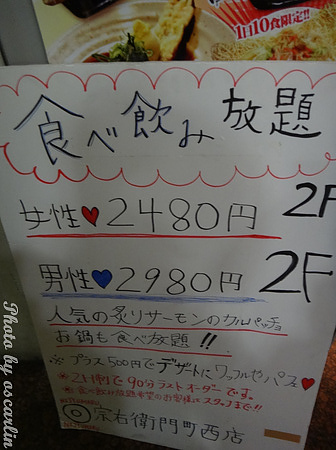 1日10食限定!!
食べ飲み放題
女性♥2480円 2F
男性♥2980円 2F
人気の炙りサーモンのカルパッチョ
お鍋も食べ放題!!
※プラス500円でデザートにワッフルやパフェ♥
※2H制で90分ラストオーダーです。
※食べ飲み放題希望のお客様にスタッフまで!!
◎宗右衛門町西店
Photo by oscarlin